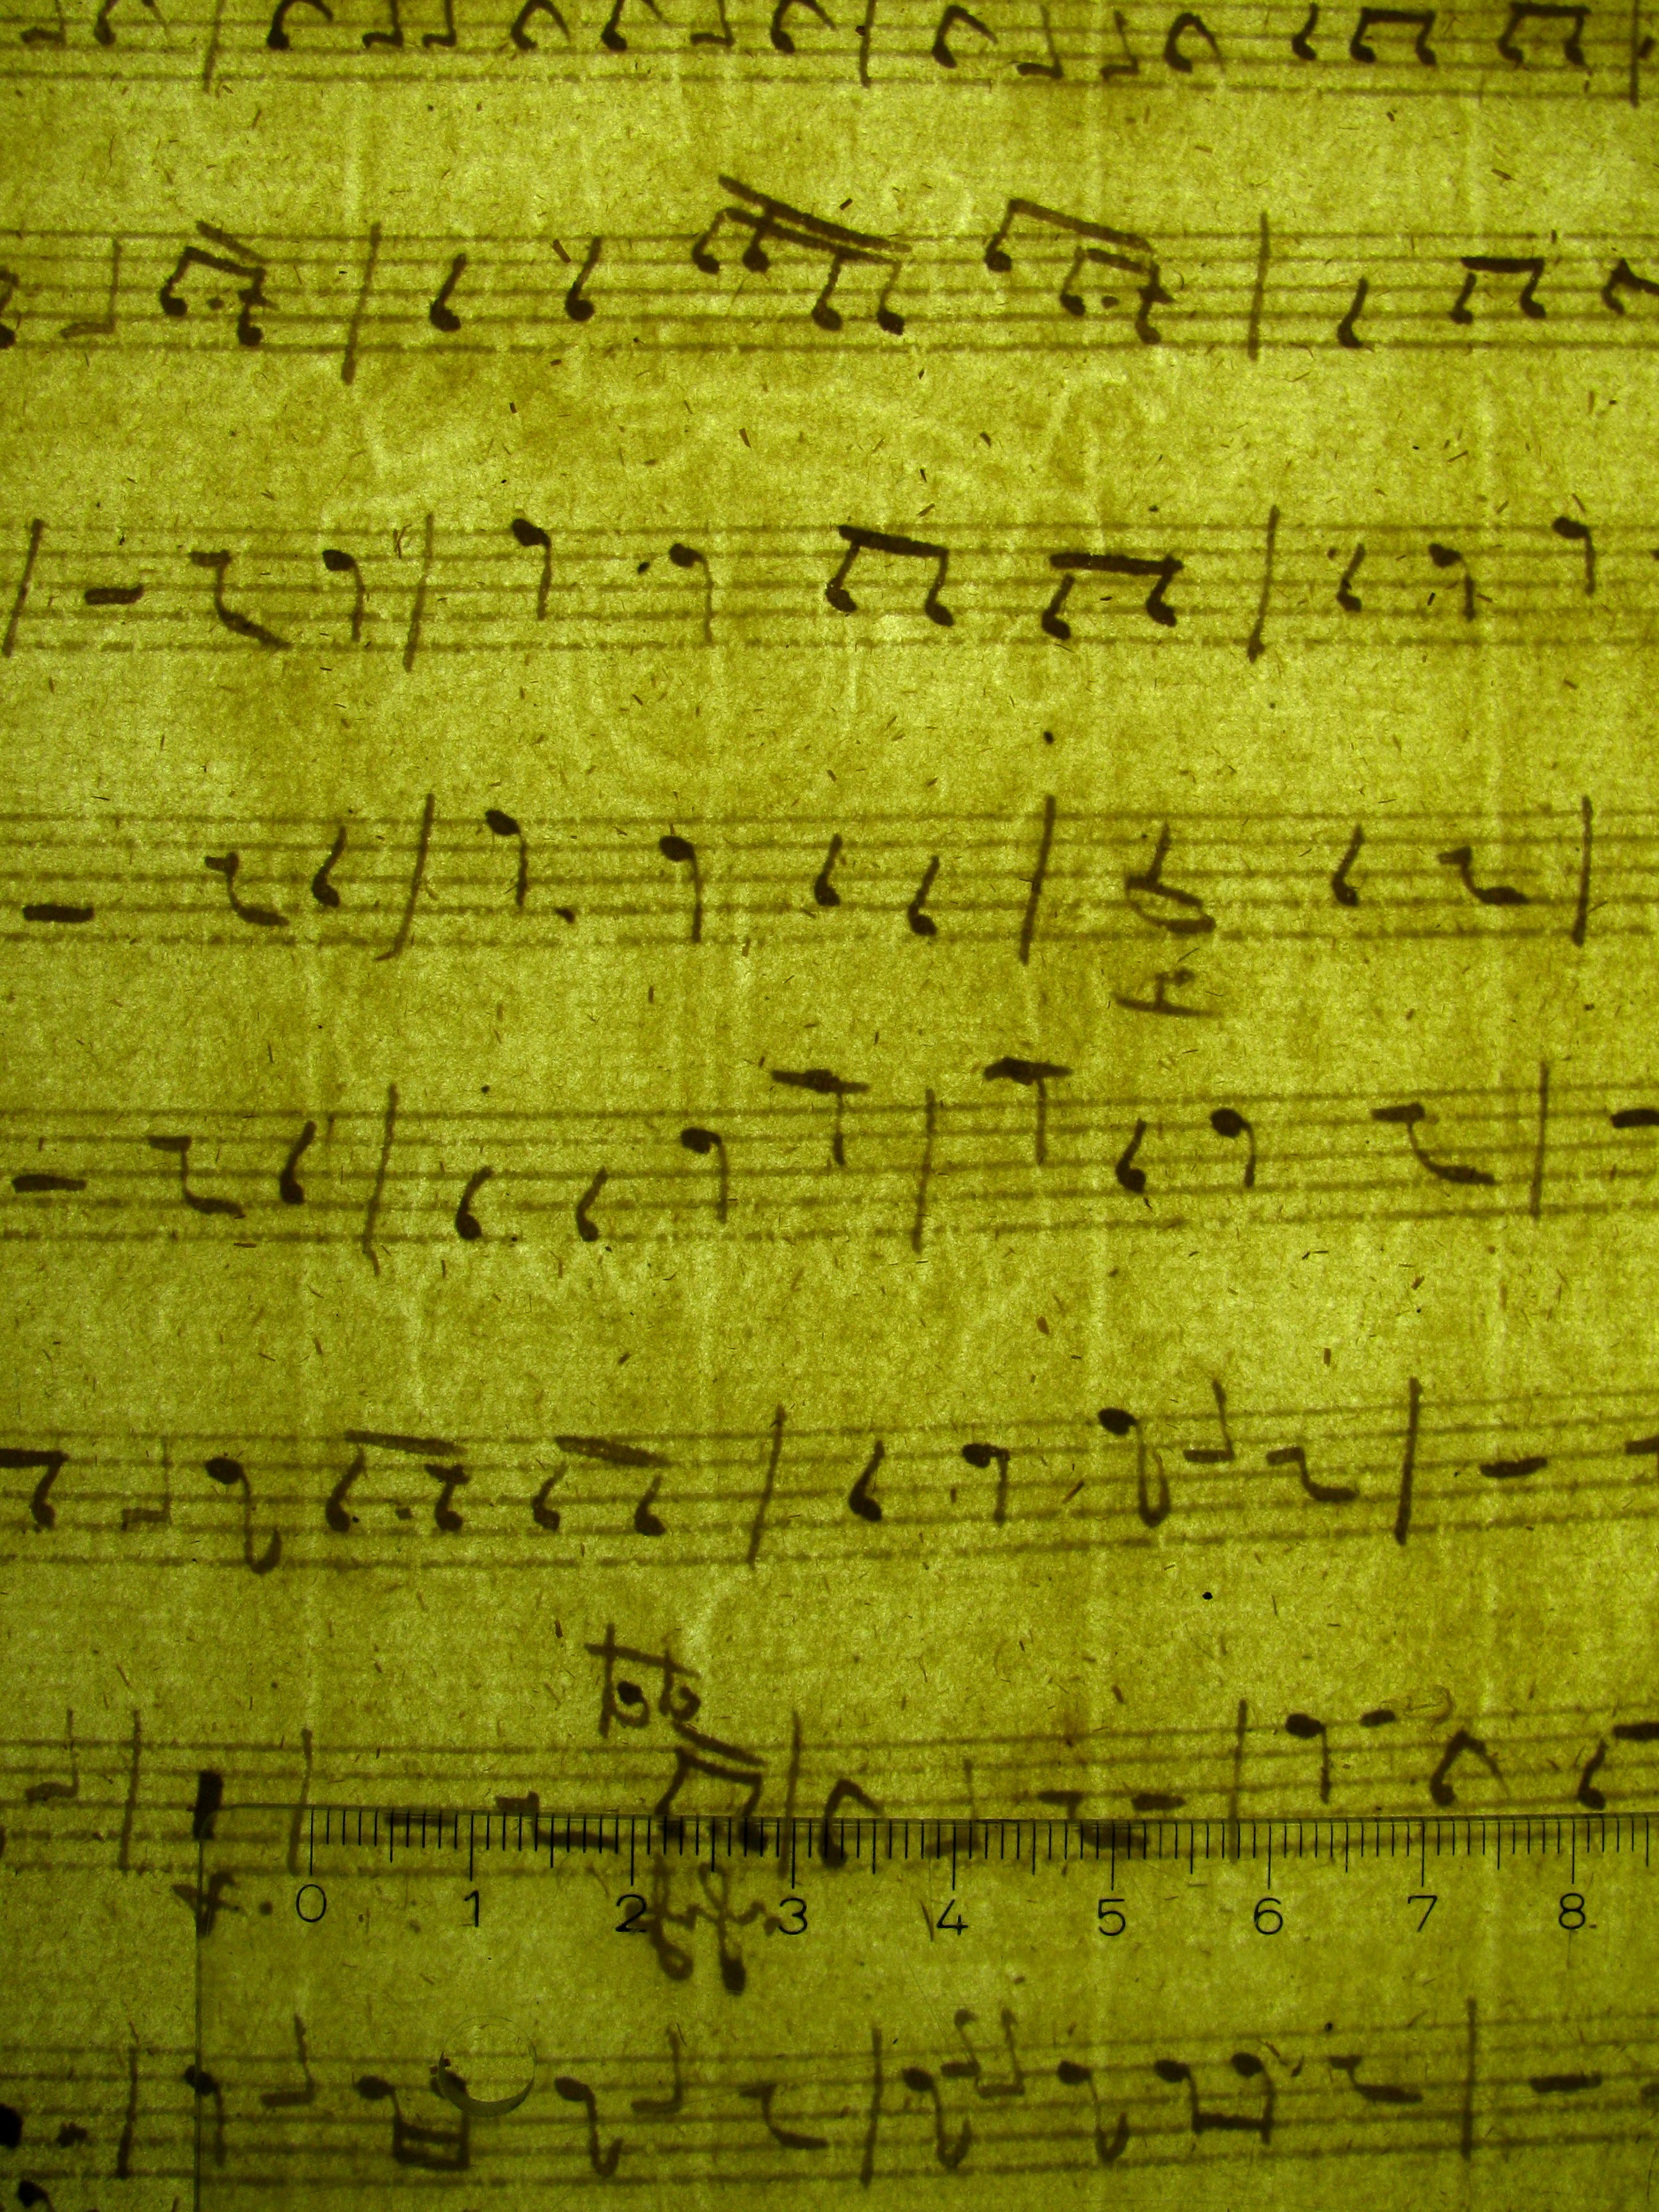 f.
0 1 2 3 4 5 6 7 8